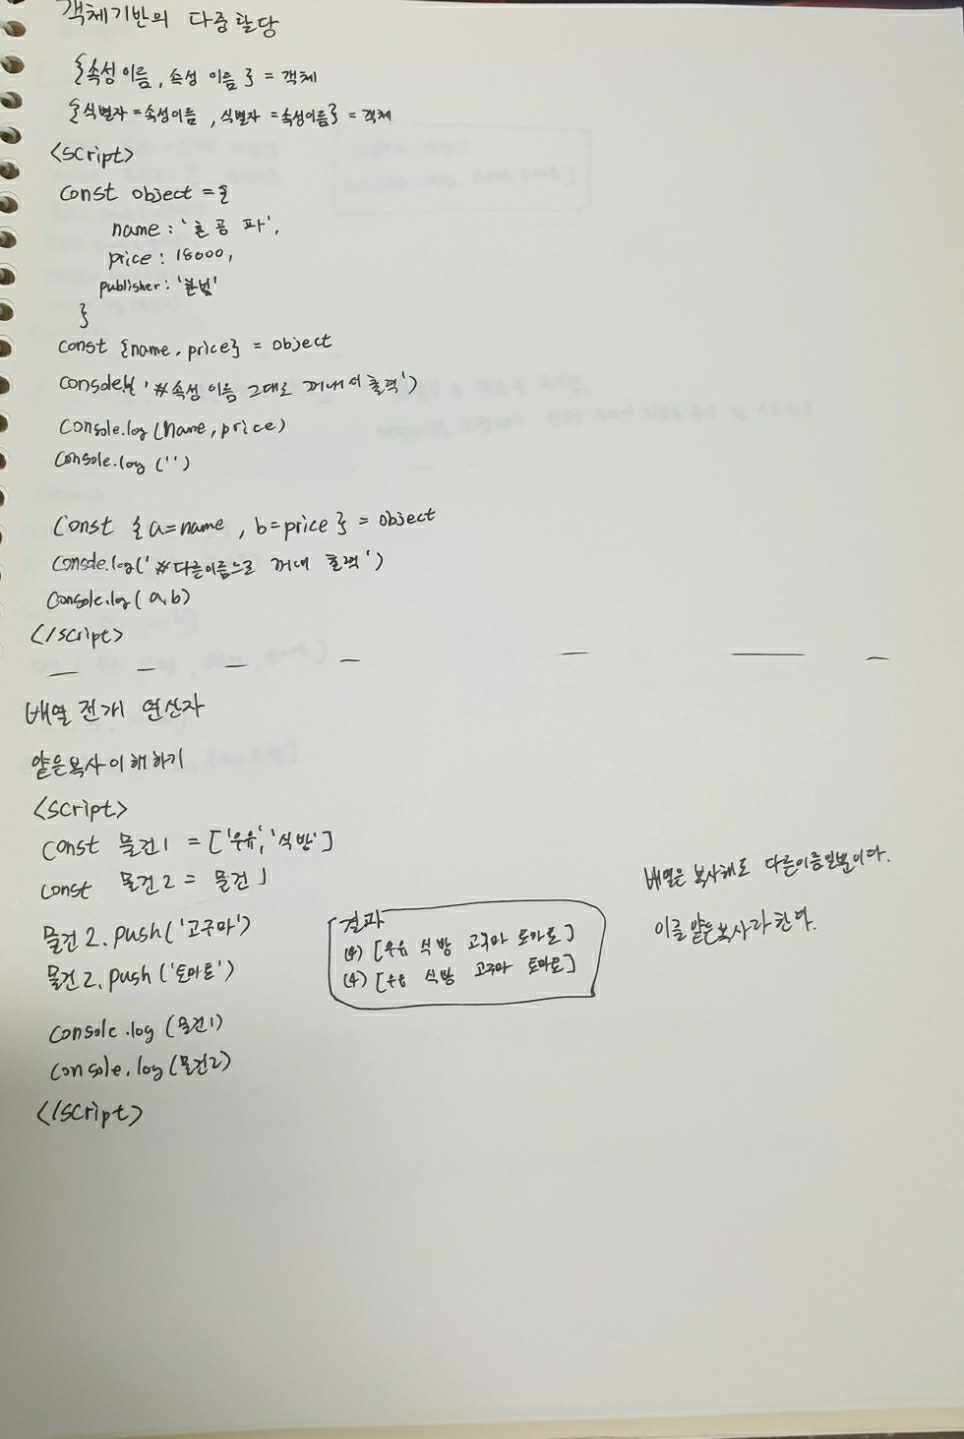 객체기반의 다중할당
{속성이름, 속성 이름 } = 객체
{식별자=속성이름 , 식별자 =속성이름} = 객체
<script>
const object = {
name : '혼공 파',
price : 18000,
publisher : '한빛'
}
const {name, price} = object
console '※속성 이름 그대로 꺼내서 출력')
console.log (name, price)
console.log ('')
const { a=name , b=price } = object
console.log('※다른이름으로 꺼내 출력')
console.log( a,b)
</script>
배열 전개 연산자
얕은복사 이해하기
<script>
const 물건1 = ['우유', '식빵']
const 물건2 = 물건1
물건2.push('고구마')
물건2.push('토마토')
결과
(4) [우유 식빵 고구마 토마토]
(4) [우유 식빵 고구마 토마토]
배열은 복사해도 다른이름일뿐이다.
이를 얕은복사라 한다.
console.log (물건1)
console.log(물건2)
</script>